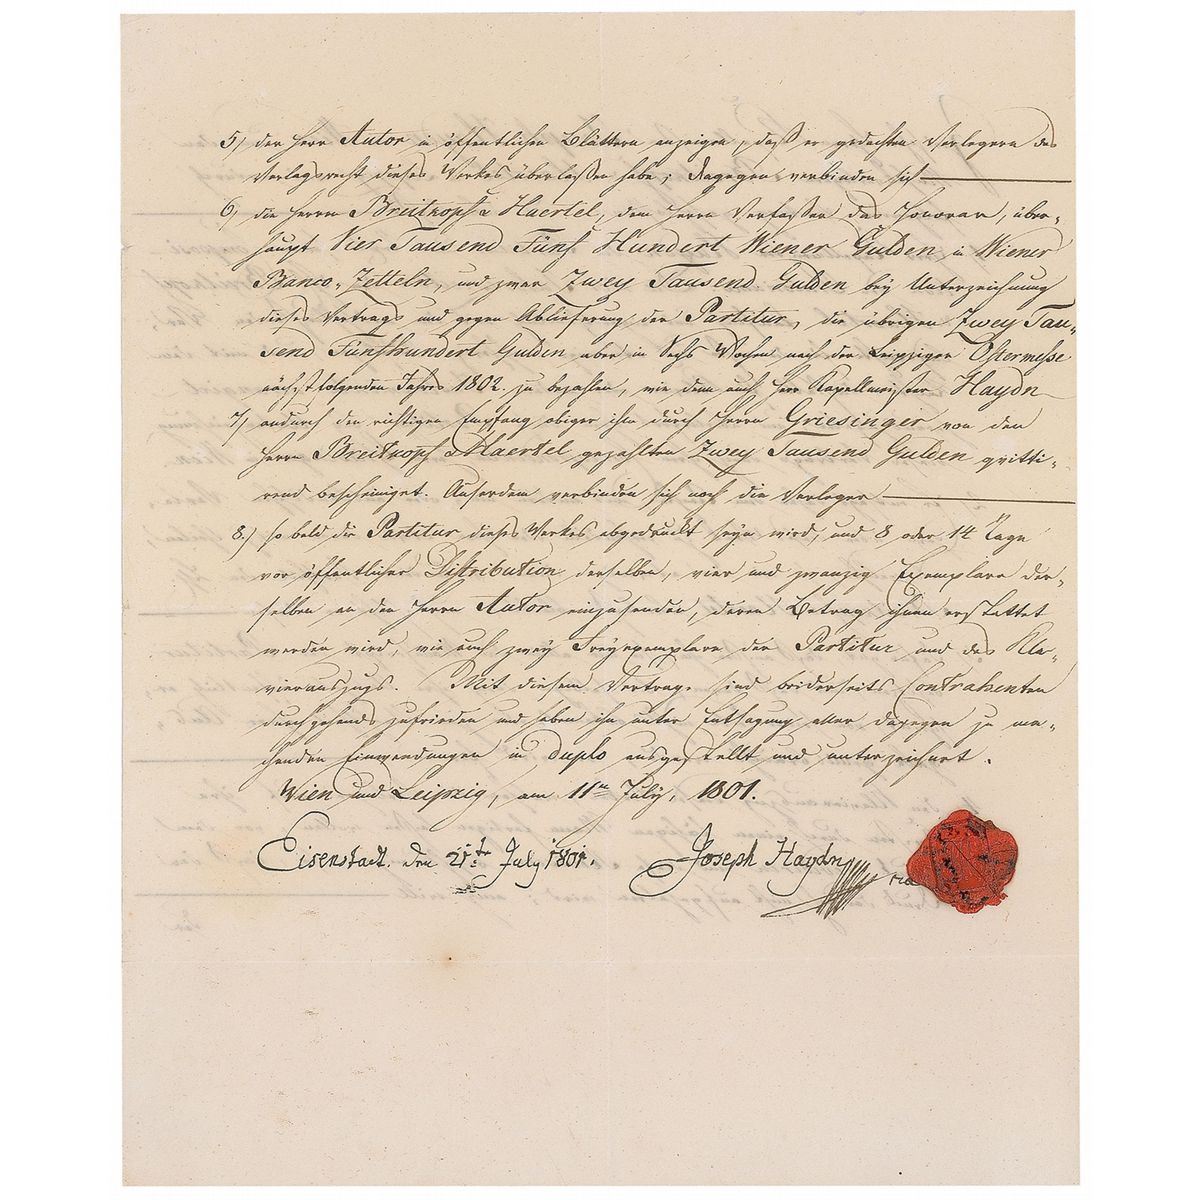 5) der Herr Autor in öffentlichen Blättern anzeigen, daß er gedachten Verlegern das
Verlagsrecht dieses Werkes überlaßen habe; dagegen verbinden sich
6) die Herrn Breitkopf & Haertel, dem Herrn Verfaßer das Honorar, über-
haupt Vier Tausend Fünf Hundert Wiener Gulden, in Wiener
Banco-Zetteln, und zwar Zwey Tausend Gulden bey Unterzeichnung
dieses Vertrags und gegen Ablieferung der Partitur, die übrigen Zwey Tau-
send Fünfhundert Gulden aber in Sechs Wochen nach der Leipziger Ostermesse
nächstfolgenden Jahres 1802. zu bezahlen, wie denn auch Herr Kapellmeister Haydn
7) andurch den richtigen Empfang obiger ihm durch Herrn Griesinger von den
Herrn Breitkopf & Haertel gezahlten Zwey Tausend Gulden quitti-
rend bescheiniget. Auserdem verbinden sich noch die Verleger
8.) so bald die Partitur dieses Werkes abgedruckt seyn wird, und 8 oder 14 Tage
vor öffentlicher Distribution derselben, vier und zwanzig Exemplare der-
selben an den Herrn Autor einzusenden, deren Betrag ihnen erstattet
werden wird, wie auch zwey Freyexemplare der Partitur und des Kla-
vierauszugs. Mit diesem Vertrage sind beiderseits Contrahenten
durchgehends zufrieden und haben ihn unter Entsagung aller dagegen zu ma-
chenden Einwendungen in duplo ausgestellt und unterzeichnet.
Wien und Leipzig, am 11ten July, 1801.
Eisenstadt, den 21ten July 1801.
Joseph Haydn